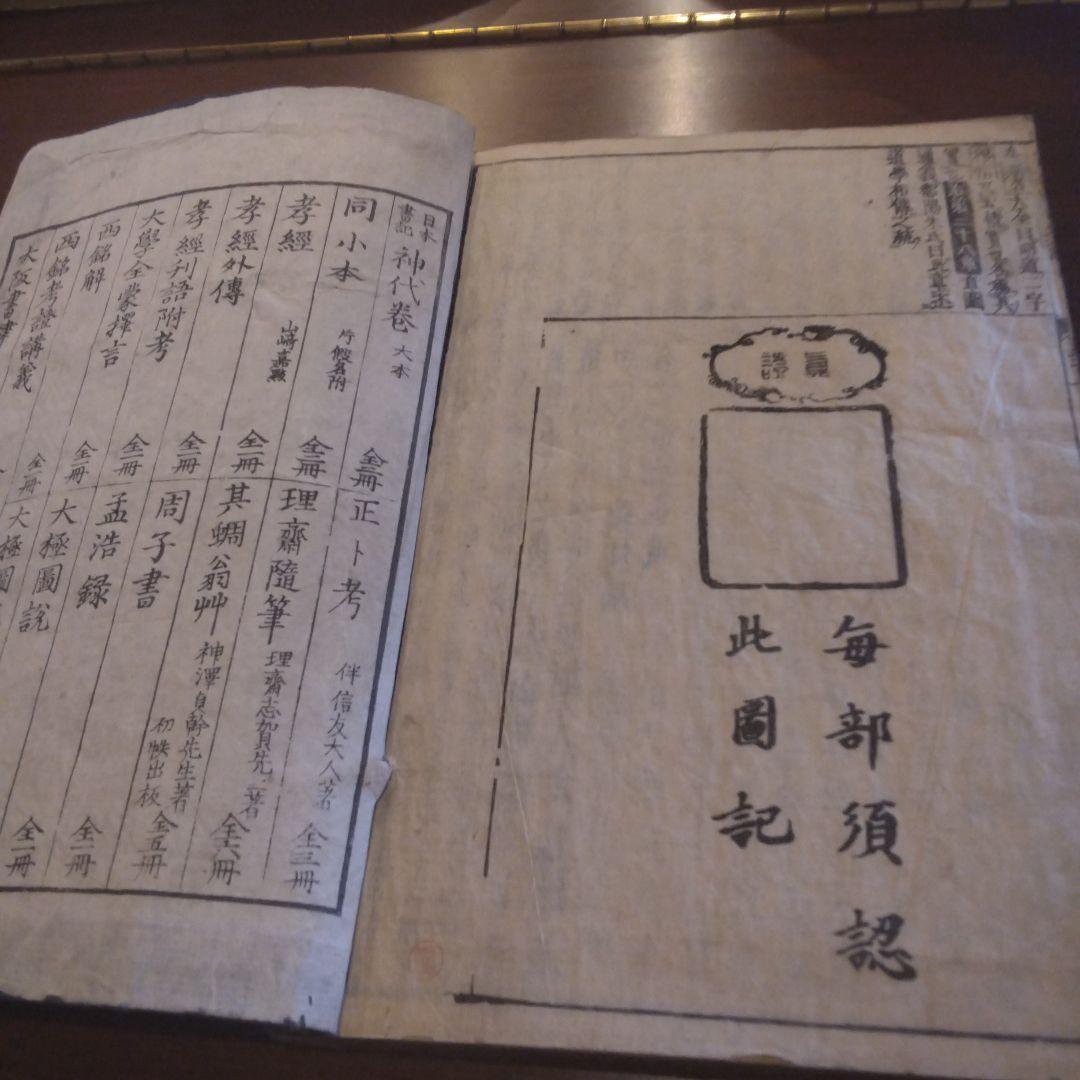 道學相傳之統
眞
證
每部須認
此圖記
日本書記 神代卷 大本
同小本 片假名附 全二冊
孝經 山﨑嘉點 全二冊
孝經外傳 全一冊
孝經刋誤附考 全一冊
大學全蒙擇言 全一冊
西銘解 全一冊
西銘考證講義 全一冊
正卜考 伴信友大人著 全三冊
理齋隨筆 理齋志賀先生著 全六冊
其蜩翁艸 神澤貞幹先生著 初帙出板 全五冊
周子書
孟浩録 全一冊
大極圖說 全一冊
大極圖